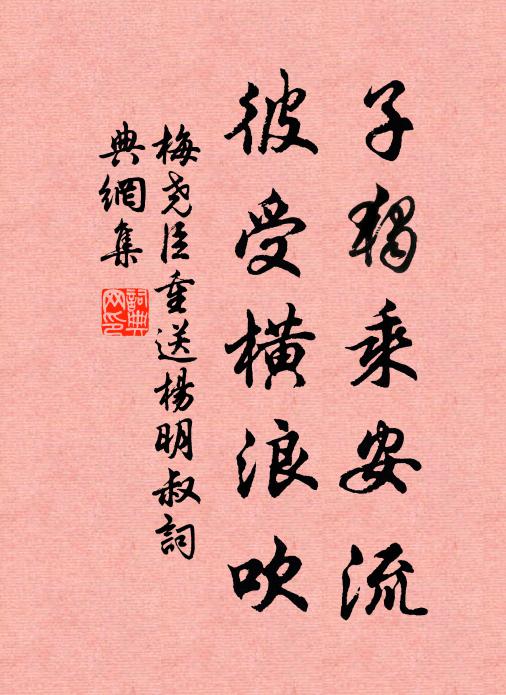 子獨乘安流
彼受橫浪吹
梅堯臣重送楊明叔詞
典網集
詞典網印